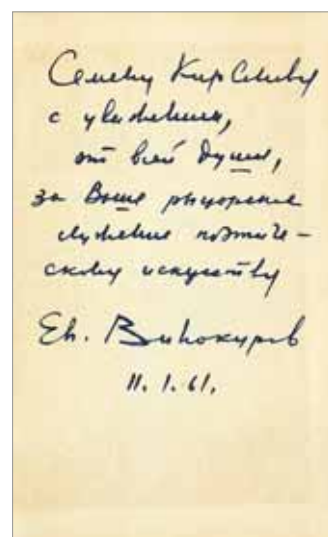 Семену Кирсанову
с уважением,
от всей души,
за Ваше рыцарское
служение поэтиче-
скому искусству
Ев. Винокуров
11.1.61.